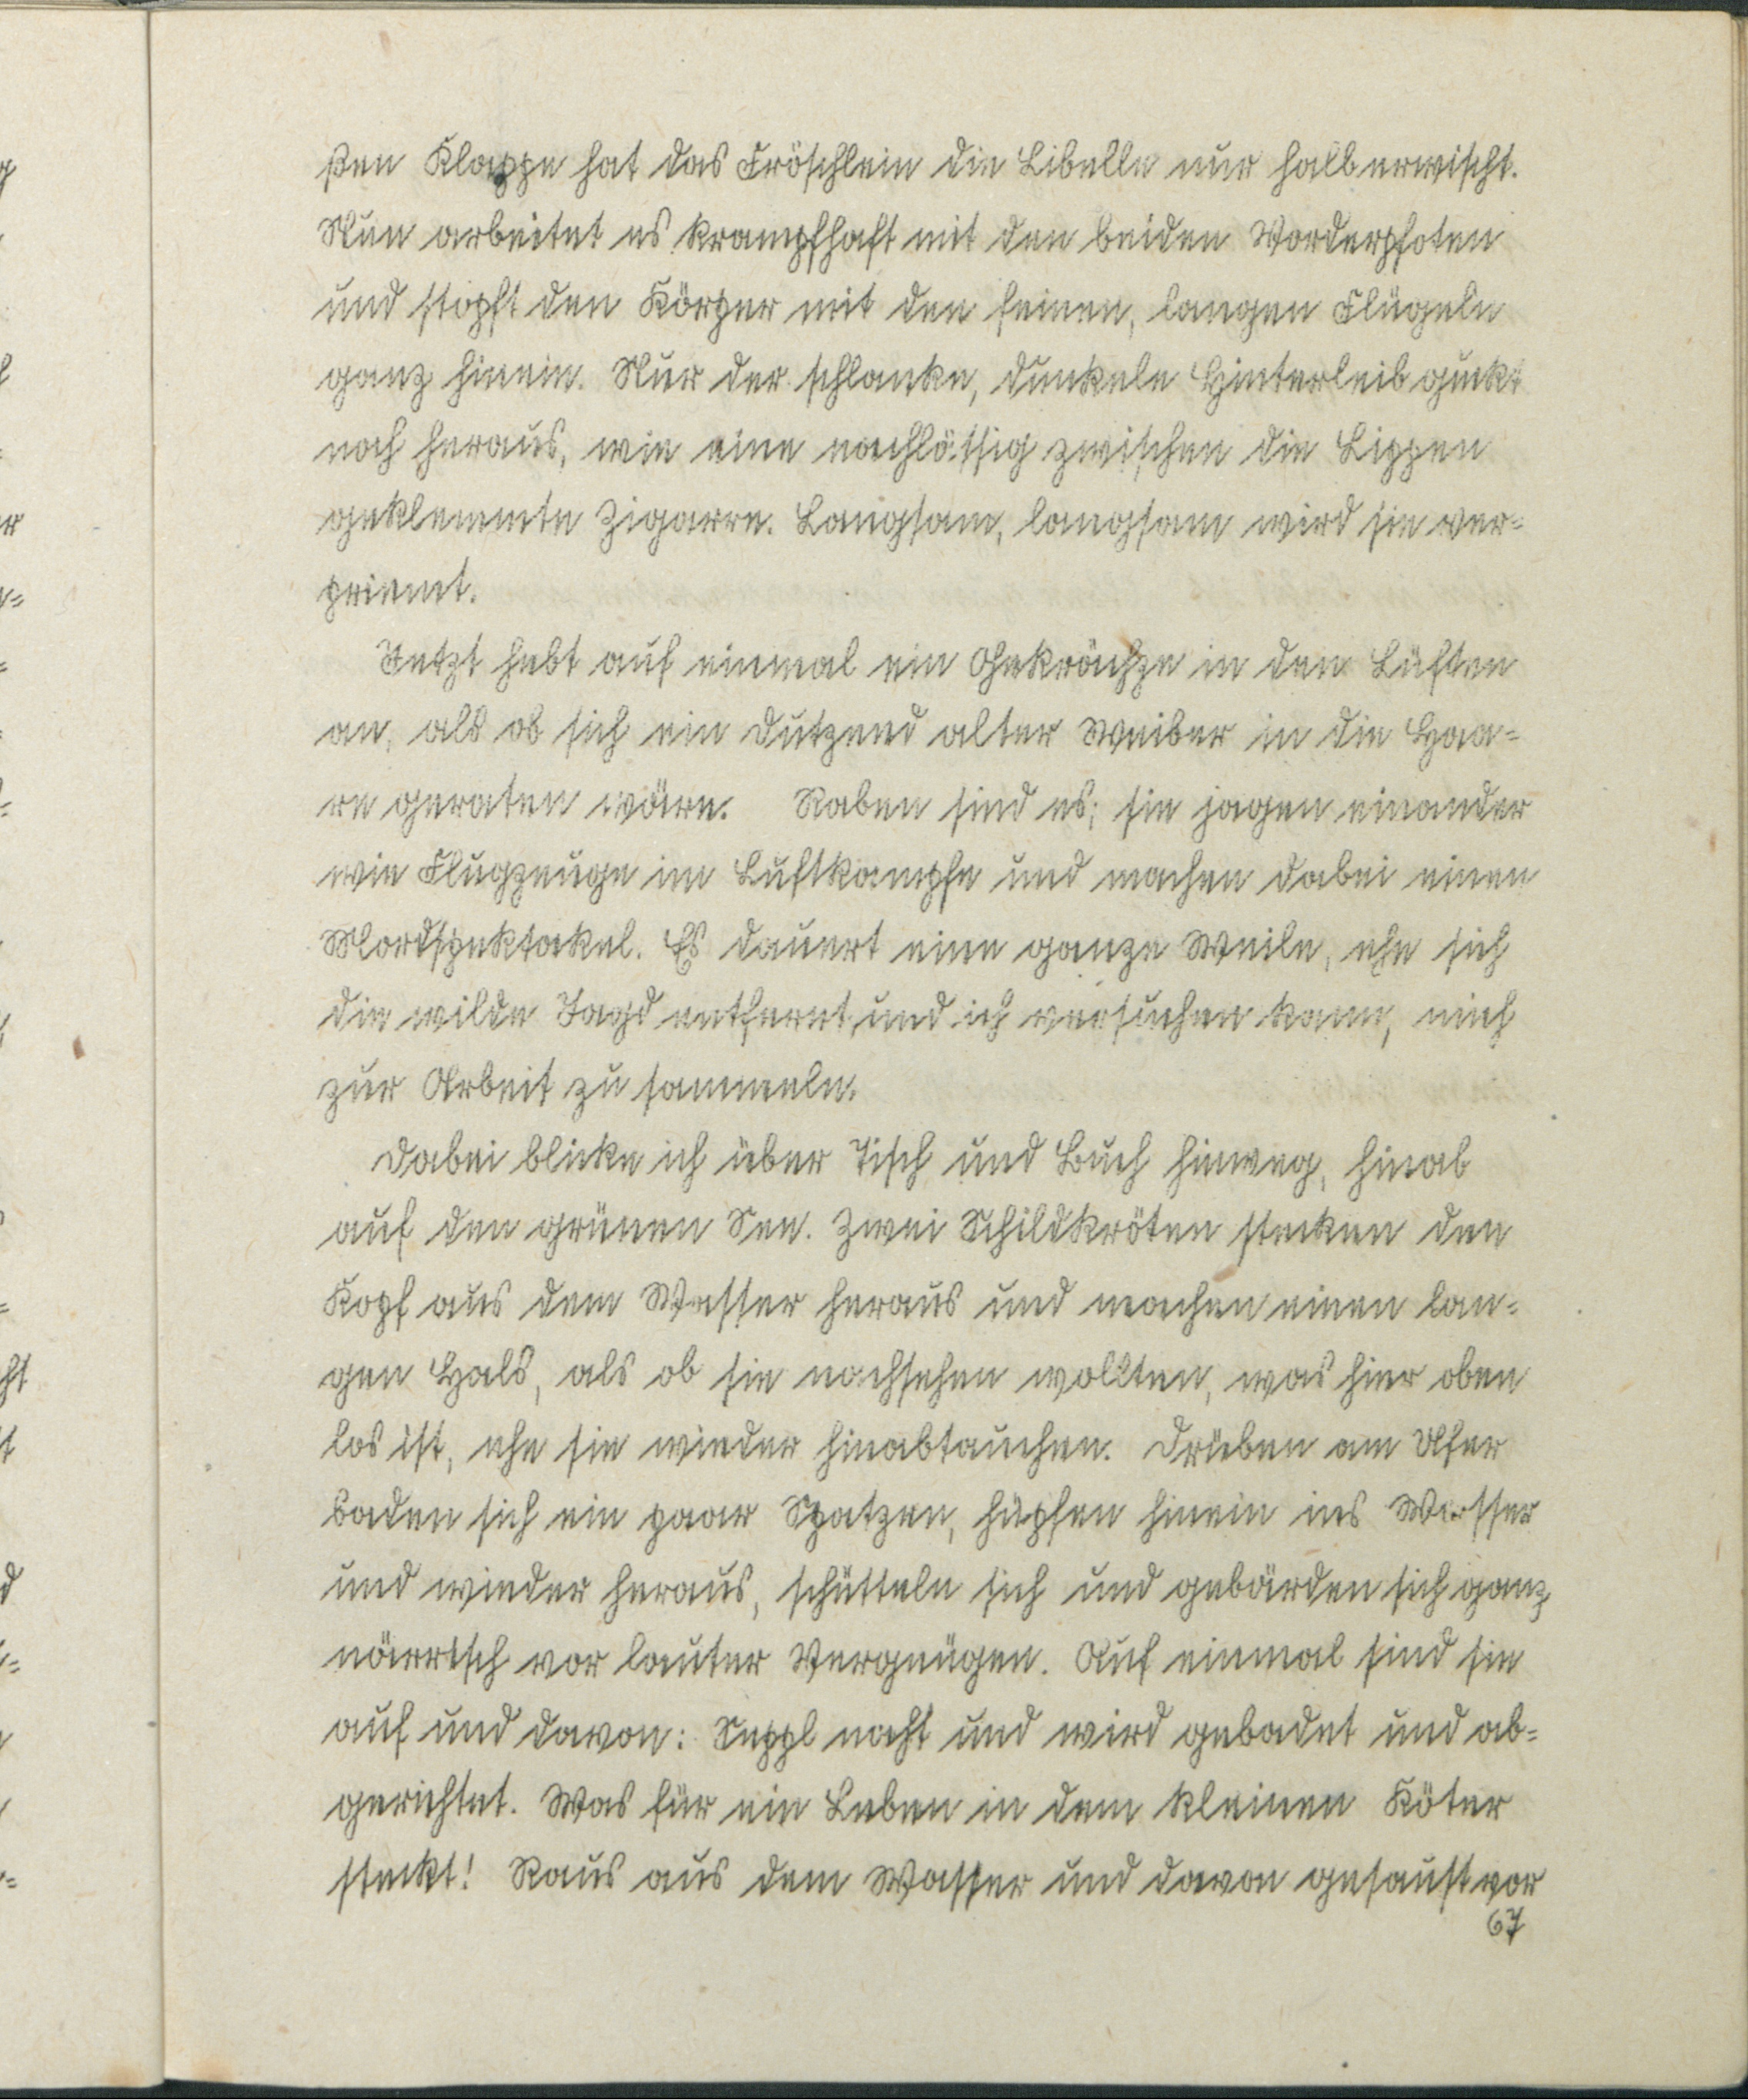 ßen Klappe hat das Fröschlein die Libelle nur halb erwischt.
Nun arbeitet es krampfhaft mit den beiden Vorderpfoten
und stopft den Körper mit den feinen, langen Flügeln
ganz hinein. Nur der schlanke, dunkele Hinterleib guckt
noch heraus, wie eine nachlässig zwischen die Lippen
geklemmte Zigarre. Langsam, langsam wird sie ver-
priemt.
Jetzt hebt auf einmal ein Gekrächze in den Lüften
an, als ob sich ein Dutzend alter Weiber in die Haa-
re geraten wäre. Raben sind es; sie jagen einander
wie Flugzeuge im Luftkampfe und machen dabei einen
Mordspektakel. Es dauert eine ganze Weile, ehe sich
die wilde Jagd entfernt und ich versuchen kann, mich
zur Arbeit zu sammeln.
Dabei blicke ich über Tisch und Buch hinweg, hinab
auf den grünen See. Zwei Schildkröten stecken den
Kopf aus dem Wasser heraus und machen einen lan-
gen Hals, als ob sie nachsehen wollten, was hier oben
los ist, ehe sie wieder hinabtauchen. Drüben am Ufer
baden sich ein paar Spatzen, hüpfen hinein ins Wasser
und wieder heraus, schütteln sich und gebärden sich ganz
närrisch vor lauter Vergnügen. Auf einmal sind sie
auf und davon: Seppl naht und wird gebadet und ab-
gerichtet. Was für ein Leben in dem kleinen Köter
steckt! Raus aus dem Wasser und davon gesaust vor
67